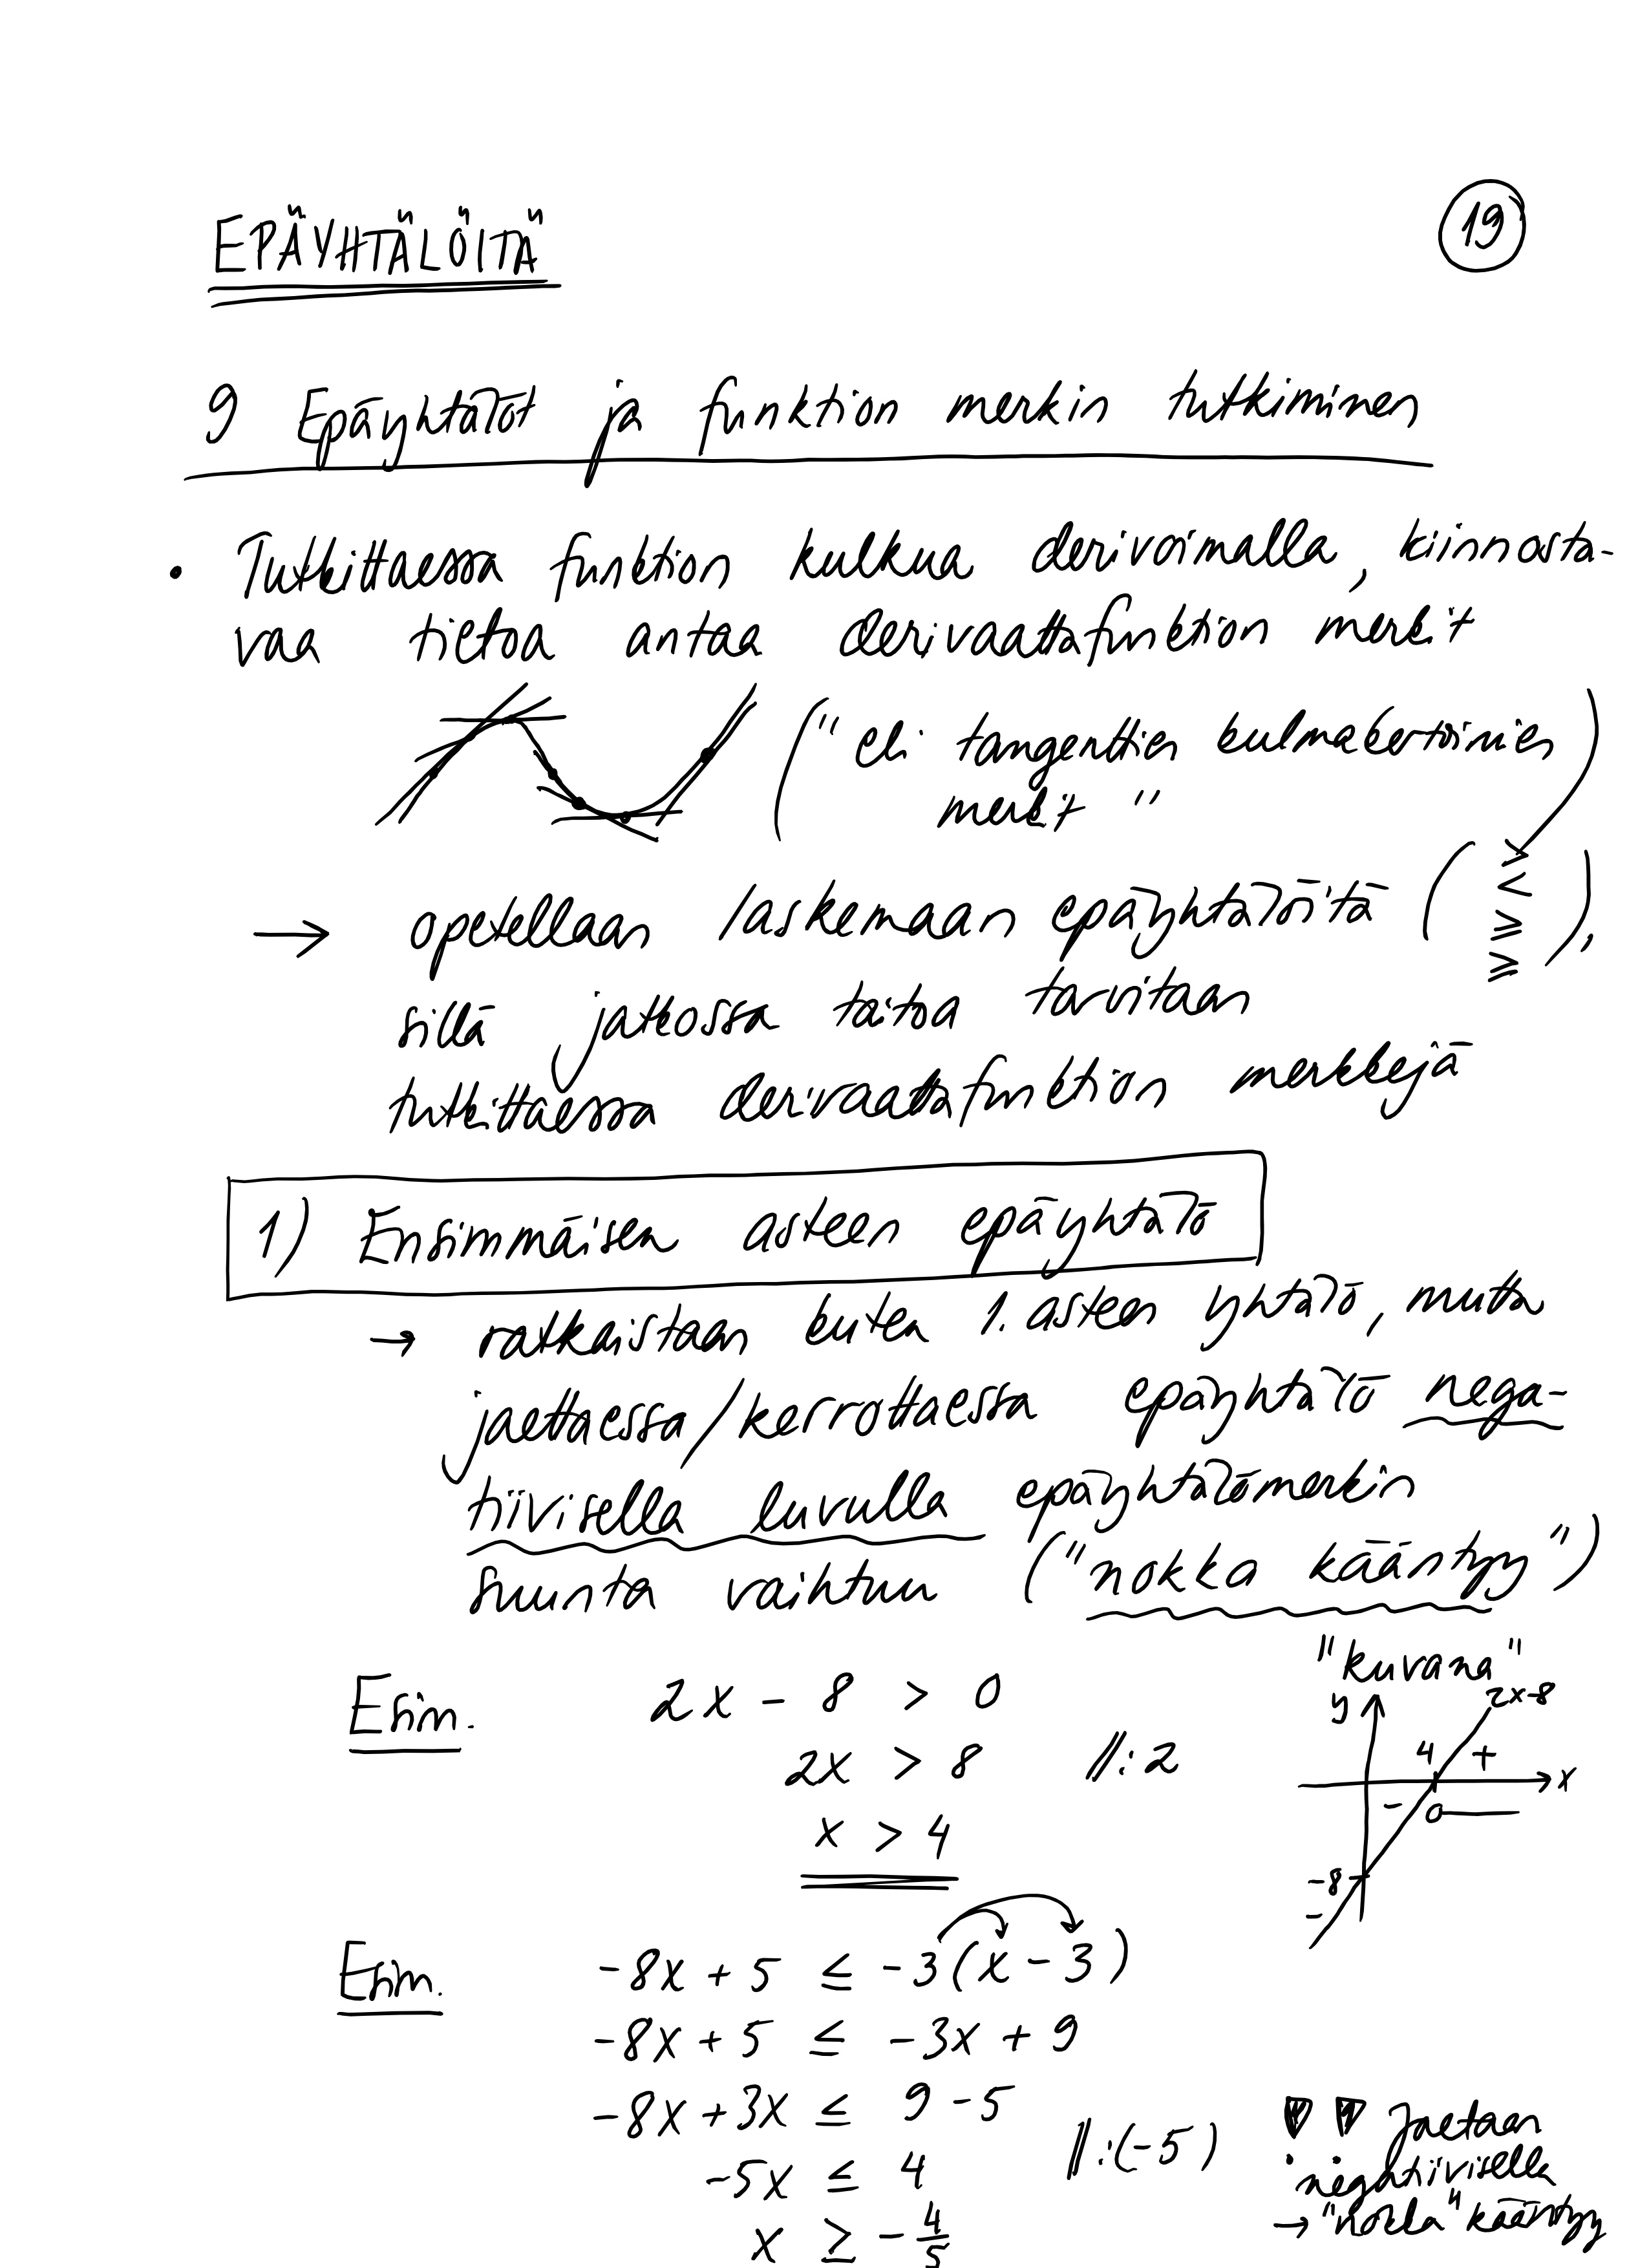 EPÄYHTÄLÖITÄ
19
9 Epäyhtälöt ja funktion merkin tutkiminen
• Tutkittaessa funktion kulkua derivoimalla, kiinnosta-
vaa tietoa antaa derivaattafunktion merkit
("eli tangenttien kulmakertoimien
merkit")
→ opetellaan laskemaan epäyhtälöitä ( > < ≥ ≥ ),
sillä jatkossa taitoa tarvitaan
tutkittaessa derivaattafunktion merkkejä
1) Ensimmäisen asteen epäyhtälö
→ ratkaistaan kuten 1. asteen yhtälö, mutta
jaettaessa/kerrottaessa epäyhtälö nega-
tiivisella luvulla epäyhtälömerkin
suunta vaihtuu ("nokka kääntyy")
"kuvana"
y 2x-8
4 +
x
-
-8
-
Esim. 2x - 8 > 0
2x > 8 ||:2
x > 4
Esim. -8x + 5 ≤ -3(x - 3)
-8x + 5 ≤ -3x + 9
-8x + 3x ≤ 9 - 5
-5x ≤ 4 ||:(-5)
x ≥ -4/5
!! Jaetaan
negatiivisella
→ "nokka" kääntyy